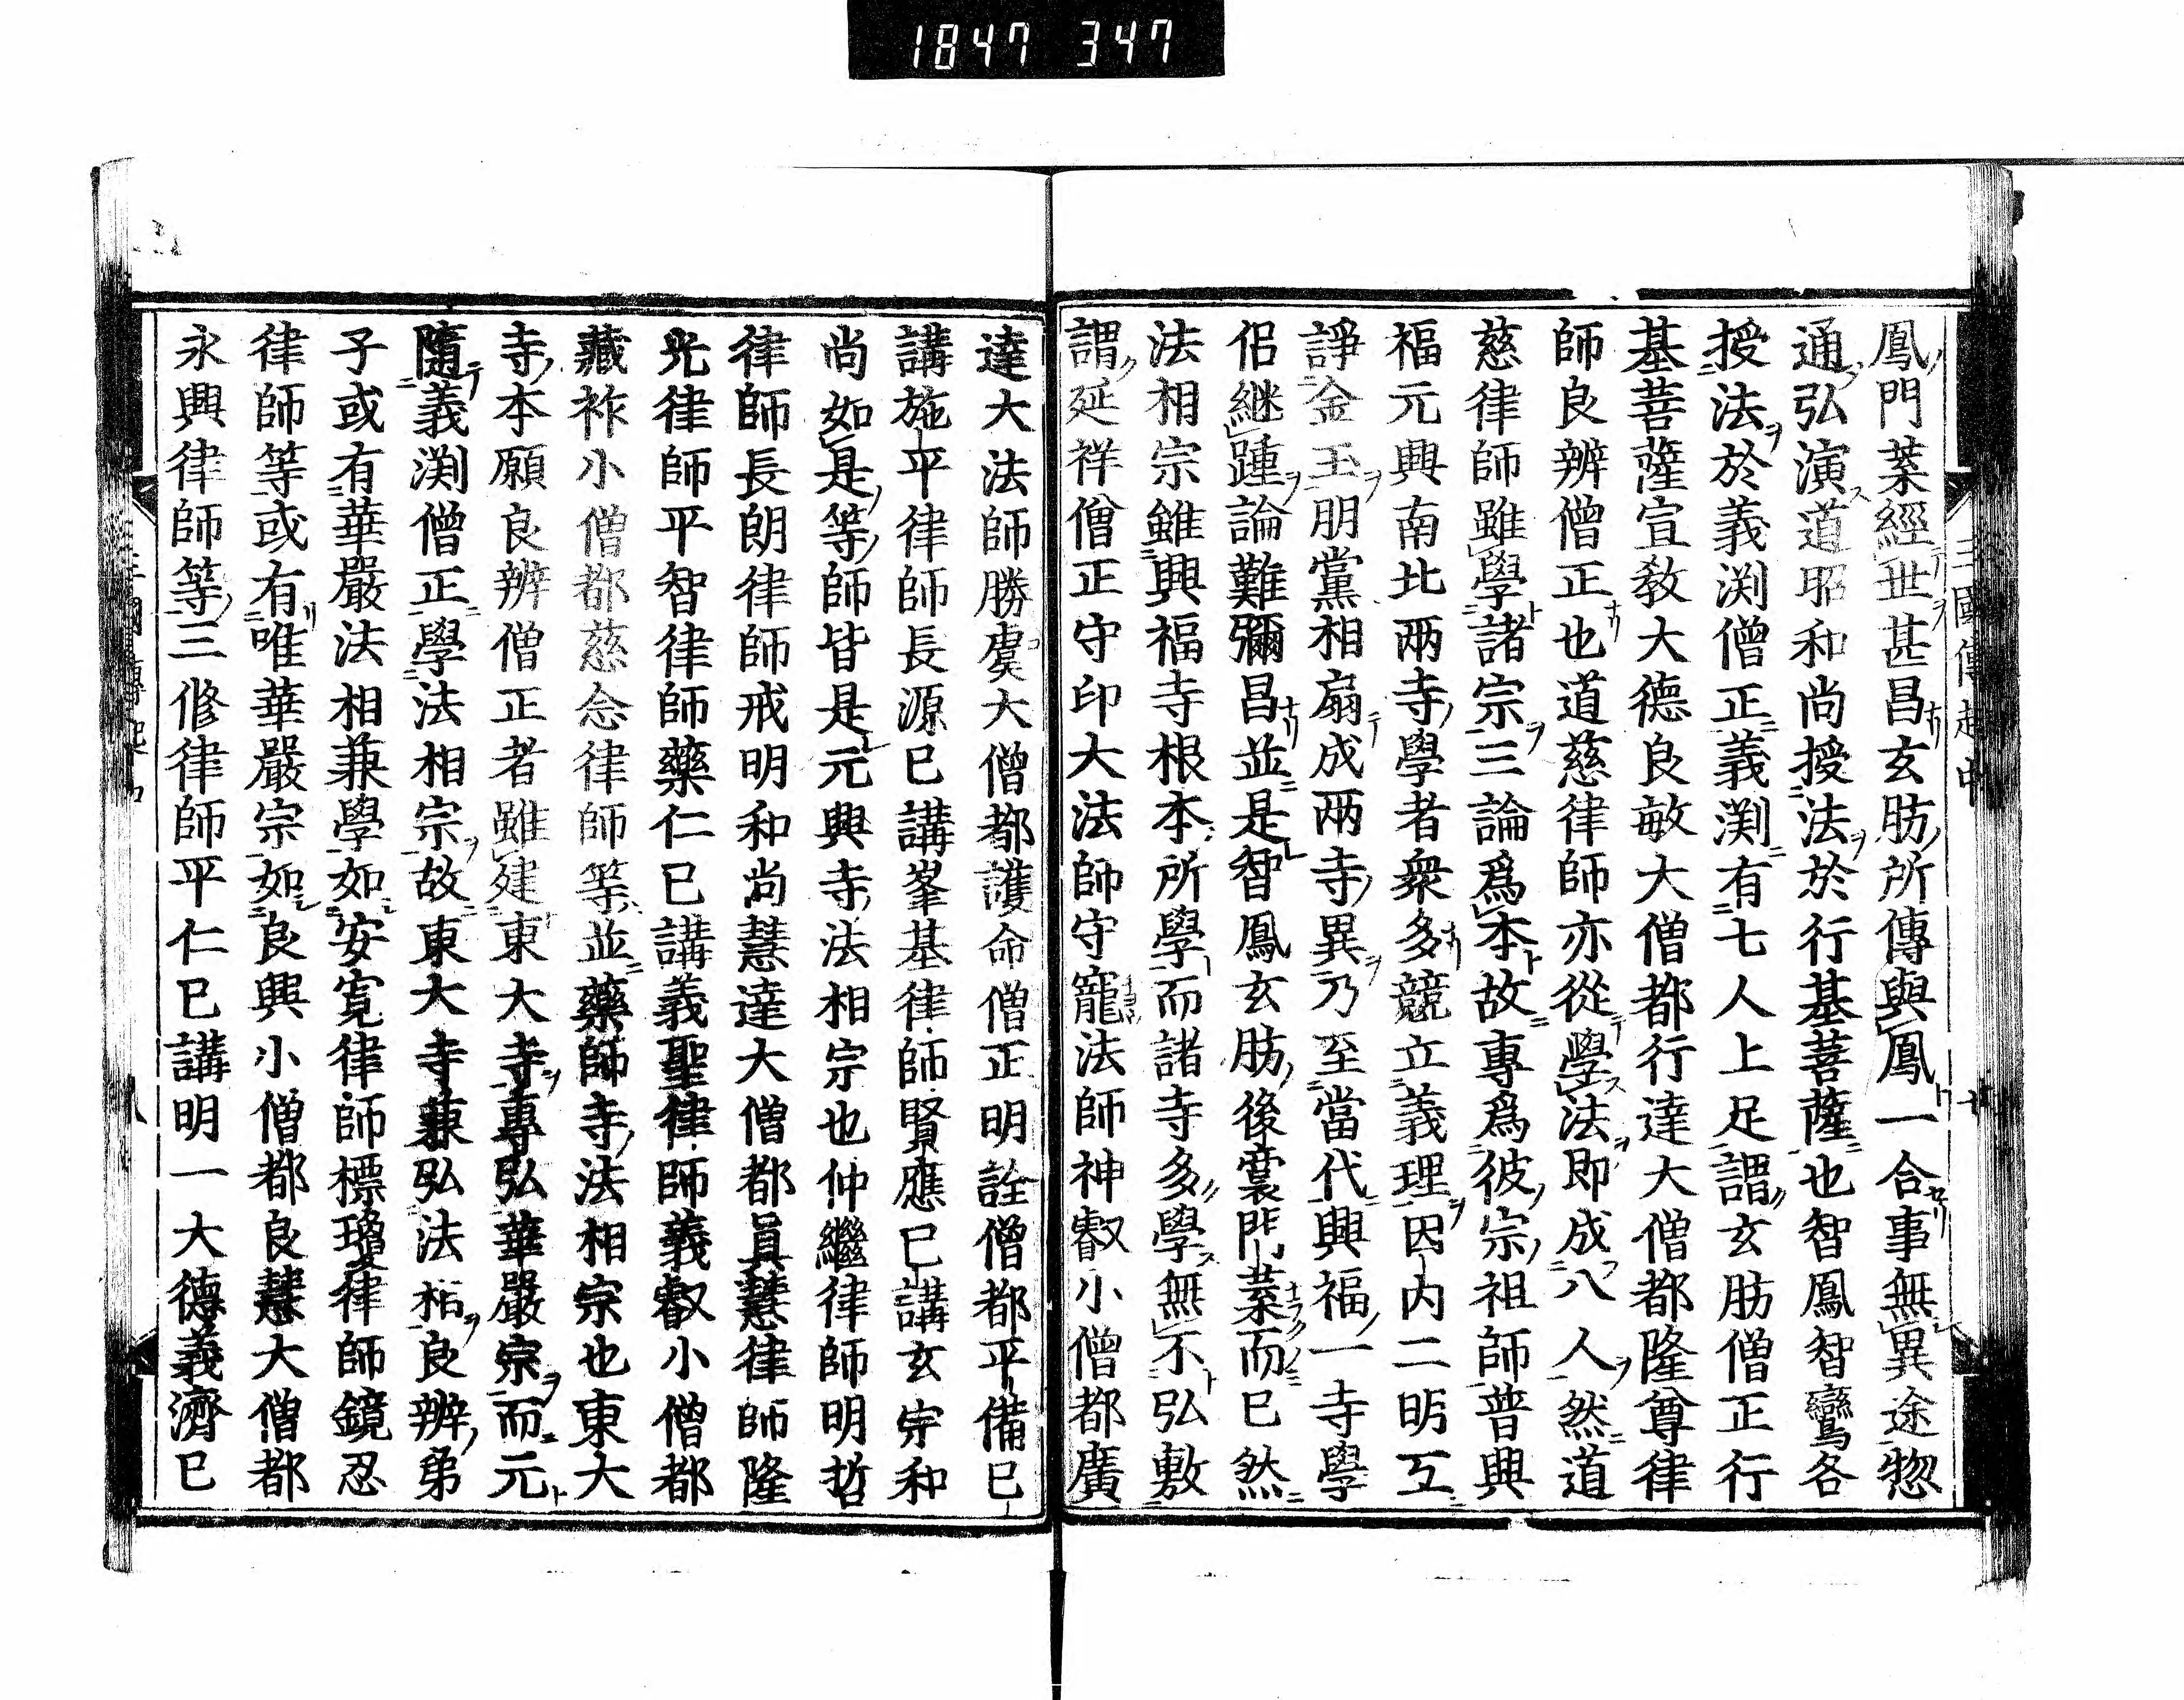 1847 347
鳳門葉經世甚昌玄肪所傳與鳳一合事無異途惣
通弘演道昭和尚授法於行基菩薩也智鳳智鸞各
授法於義渕僧正義渕有七人上足謂玄肪僧正行
基菩薩宣敎大德良敏大僧都行達大僧都隆尊律
師良辨僧正也道慈律師亦從學法即成八人然道
慈律師雖學諸宗三論爲本故專爲彼宗祖師普興
福元興南北兩寺學者衆多競立義理因内二明互
諍金玉朋黨相扇成兩寺異乃至當代興福一寺學
侶継踵論難彌昌並是智鳳玄肪後裔門葉而已然
法相宗雖興福寺根本所學而諸寺多學無不弘敷
謂延祥僧正守印大法師守寵法師神叡小僧都廣
達大法師勝虞大僧都護命僧正明詮僧都平備已
講施平律師長源已講峯基律師賢應已講玄宗和
尚如是等師皆是元興寺法相宗也仲繼律師明哲
律師長朗律師戒明和尚慧達大僧都眞慧律師隆
光律師平智律師藥仁已講義聖律師義叡小僧都
藏祚小僧都慈念律師等並藥師寺法相宗也東大
寺本願良辨僧正者雖建東大寺專弘華嚴宗而元
隨義渕僧正學法相宗故東大寺兼弘法相良辨弟
子或有華嚴法相兼學如安寬律師標瓊律師鏡忍
律師等或有唯華嚴宗如良興小僧都良慧大僧都
永興律師等三修律師平仁已講明一大德義濟已
三國傳起中 十